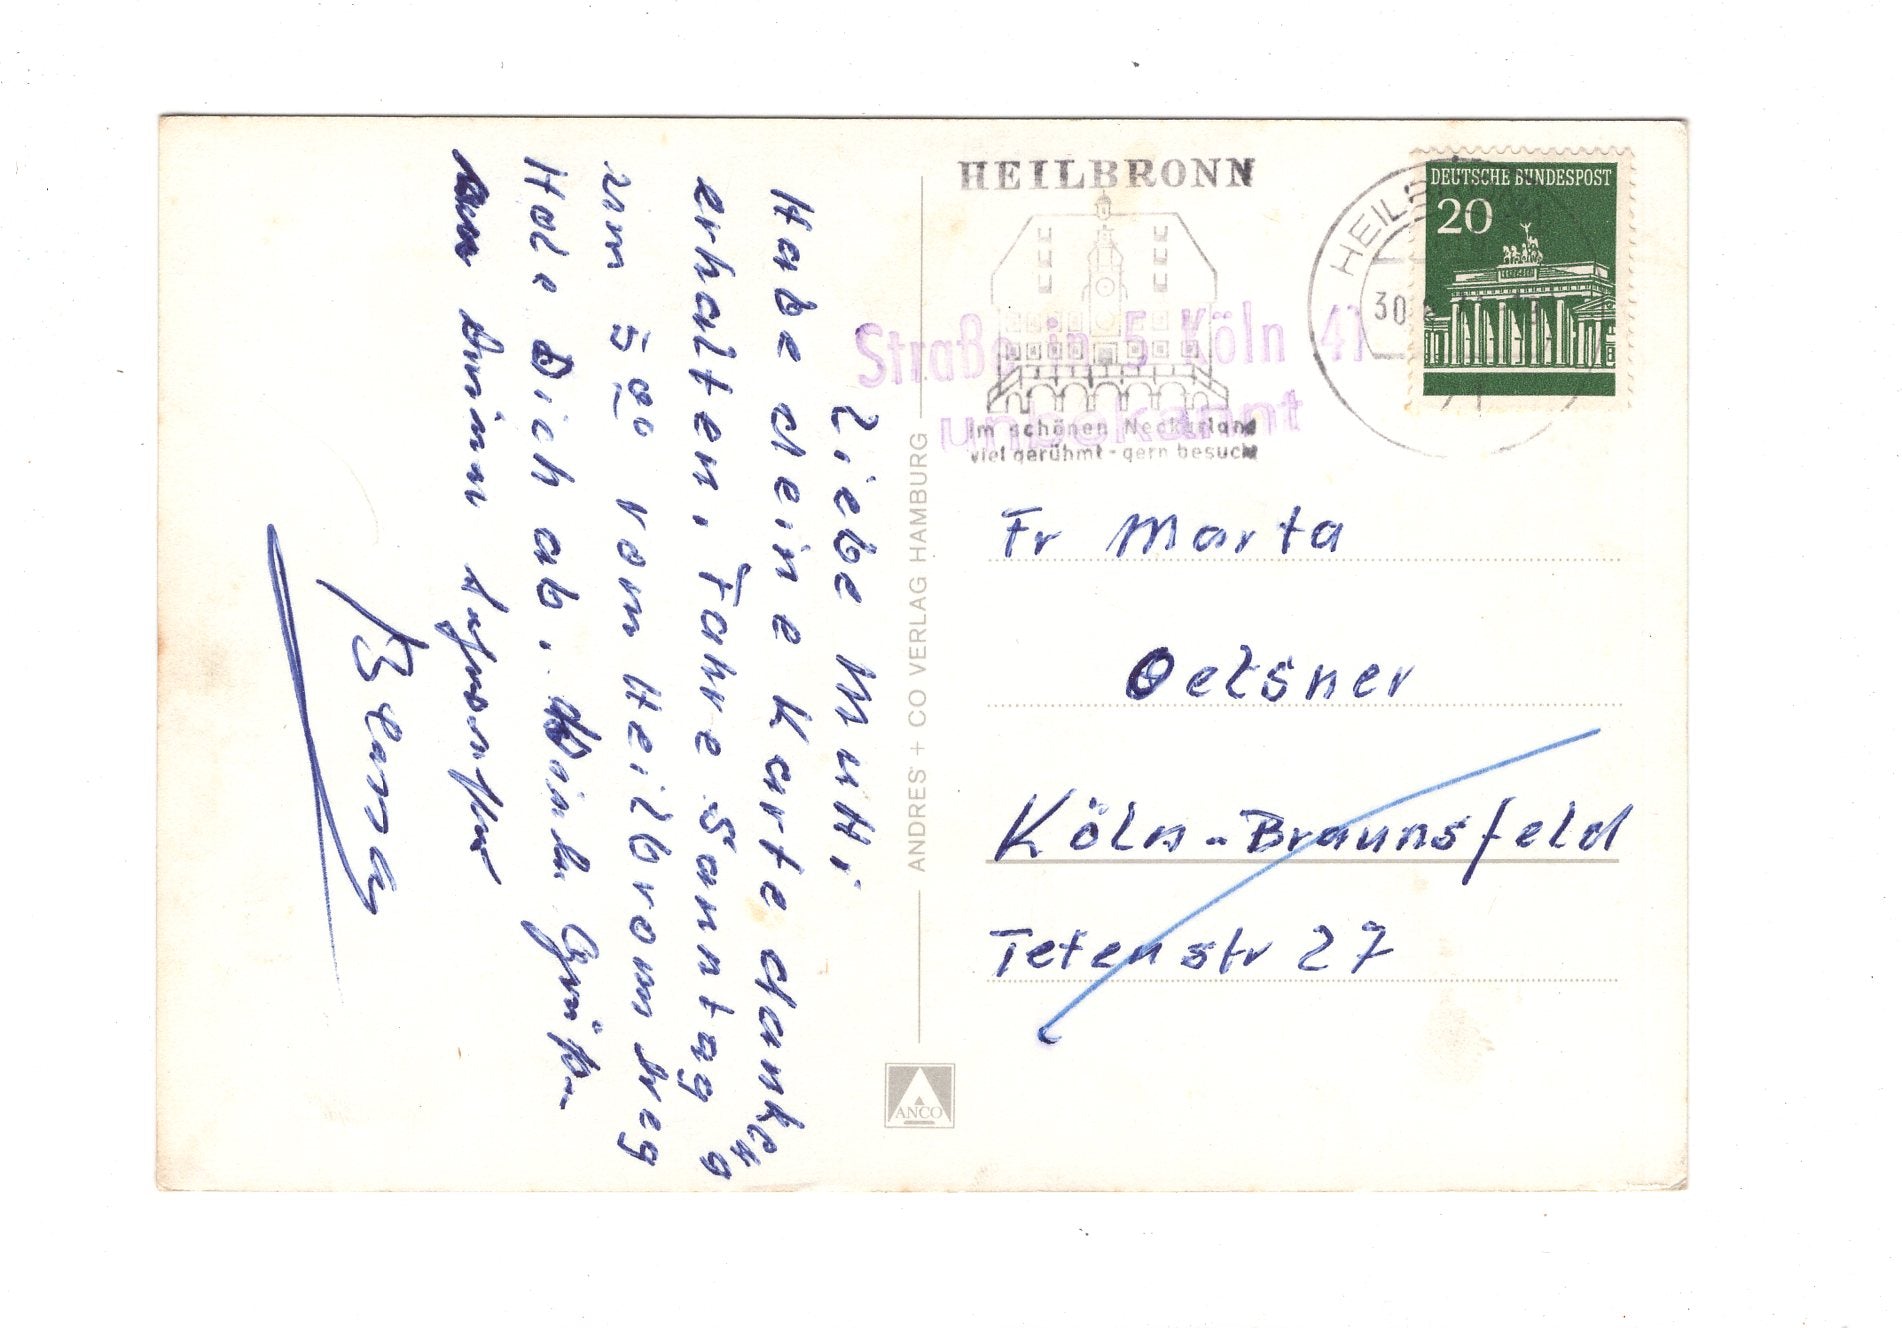 Liebe Mutti
Habe deine Karte danke
erhalten. Fahre Sonntag
um 5 00 von Heilbronn weg
Hole Dich ab. Viele Grüße
Benny
ANDRES + CO VERLAG HAMBURG
ANCO
HEILBRONN
Im schönen Neckarland
viel gerühmt - gern besucht
Straße in 5 Köln 41
unbekannt
DEUTSCHE BUNDESPOST
20
30
71
Fr Marta
Oelsner
Köln-Braunsfeld
Tetenstr 27